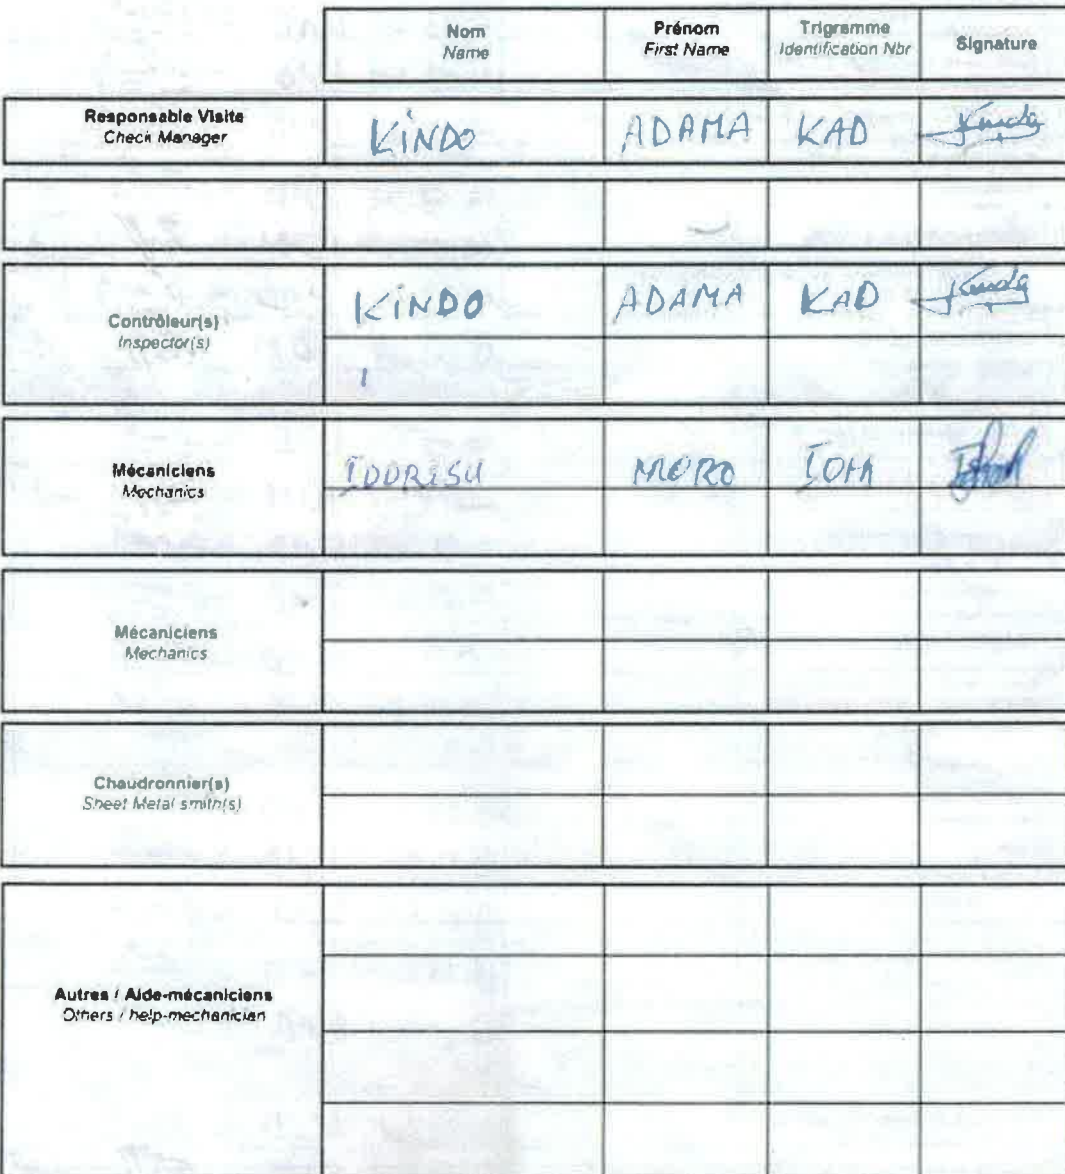 Nom Prénom Trigramme Signature
Name First Name Identification Nbr
Responsable Visite
Check Manager
KINDO ADAMA KAD
Contrôleur(s)
Inspector(s)
KINDO ADAMA KAD
Mécaniciens
Mechanics
IDDRISU MORO
Mécaniciens
Mechanics
Chaudronnier(s)
Sheet Metal smith(s)
Autres / Aide-mécaniciens
Others / help-mechanician